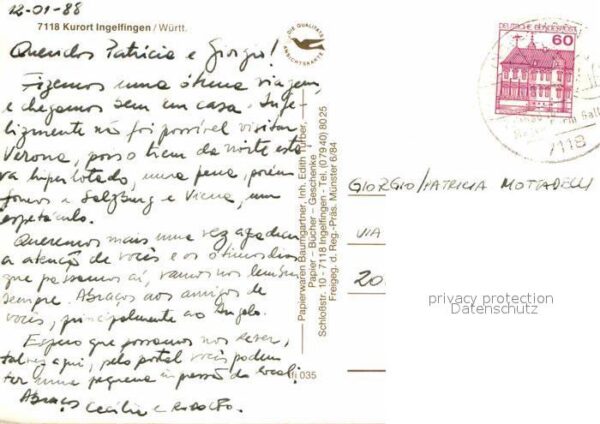 12-01-88
7118 Kurort Ingelfingen / Württ.
DIE QUALITÄTS
ANSICHTSKARTE
Queridos Patrícia e Giorgio!
Fizemos uma ótima viagem,
e chegamos bem em casa. Infe-
lizmente não foi possível visitar
Verona, pois o trem da noite esta
va hiperlotado, uma pena, porém
fomos a Salzburg e Viena, um
espetáculo.
Queremos mais uma vez agradecer
a atenção de vocês e os ótimos dias
que passamos aí, vamos nos lembrar
sempre. Abraços aos amigos de
vocês, principalmente ao Angelo.
Espero que possamos nos rever,
talvez aqui, pelo postal vocês podem
ter uma pequena impressão do local;
Abraços Cecília e
Papierwaren Baumgartner, Inh. Edith Türber,
Papier – Bücher – Geschenke
Schloßstr. 10 - 7118 Ingelfingen - Tel. (07940) 8025
Freigeg. d. Reg.-Präs. Münster 6/84
fi 035
DEUTSCHE BUNDESPOST
60
7118
GIORGIO/PATRICIA MOTTADELLI
VIA
20
privacy protection
Datenschutz